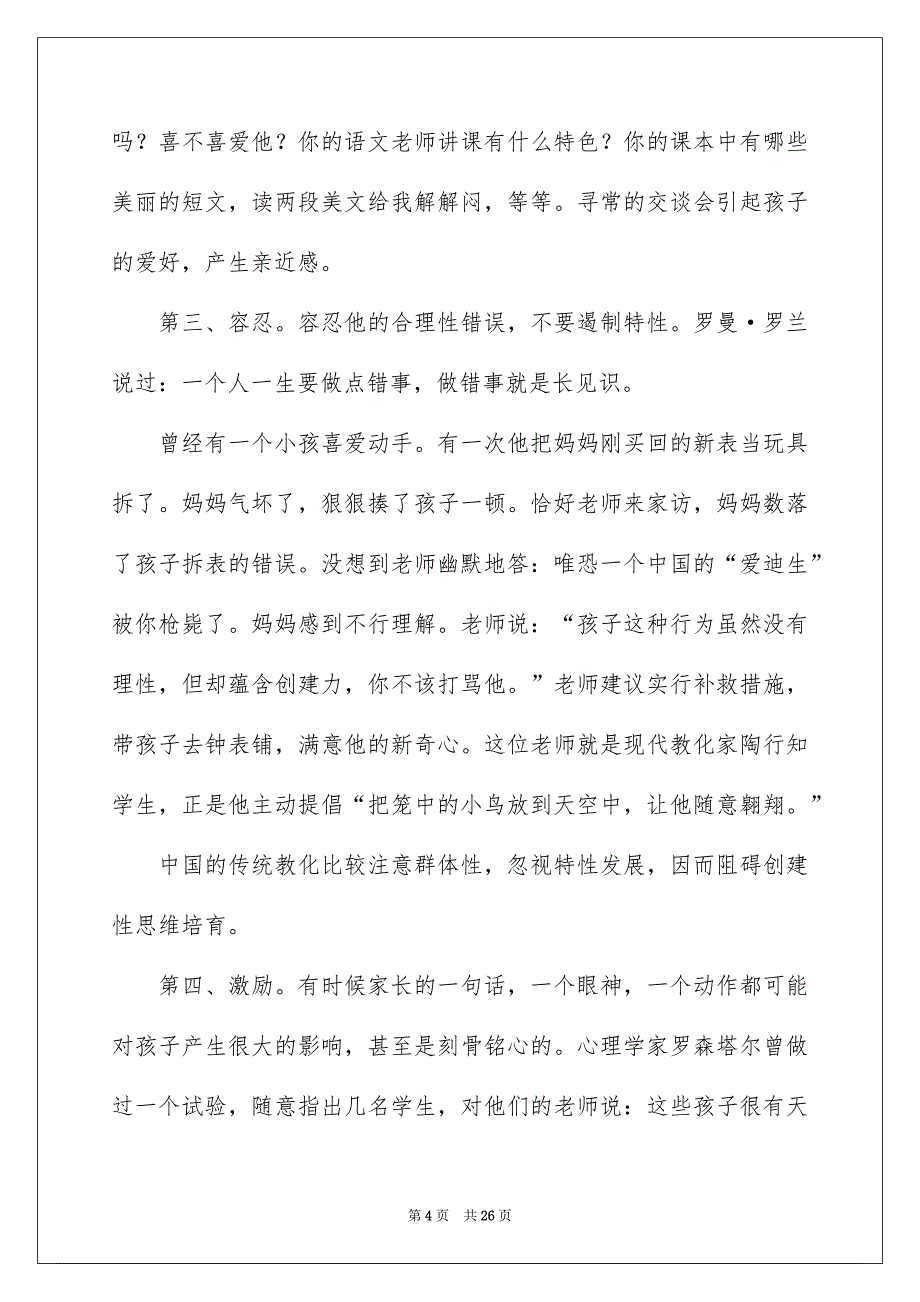 吗？喜不喜爱他？你的语文老师讲课有什么特色？你的课本中有哪些
美丽的短文，读两段美文给我解解闷，等等。寻常的交谈会引起孩子
的爱好，产生亲近感。
第三、容忍。容忍他的合理性错误，不要遏制特性。罗曼·罗兰
说过：一个人一生要做点错事，做错事就是长见识。
曾经有一个小孩喜爱动手。有一次他把妈妈刚买回的新表当玩具
拆了。妈妈气坏了，狠狠揍了孩子一顿。恰好老师来家访，妈妈数落
了孩子拆表的错误。没想到老师幽默地答：唯恐一个中国的“爱迪生”
被你枪毙了。妈妈感到不行理解。老师说：“孩子这种行为虽然没有
理性，但却蕴含创建力，你不该打骂他。”老师建议实行补救措施，
带孩子去钟表铺，满意他的新奇心。这位老师就是现代教化家陶行知
学生，正是他主动提倡“把笼中的小鸟放到天空中，让他随意翱翔。”
中国的传统教化比较注意群体性，忽视特性发展，因而阻碍创建
性思维培育。
第四、激励。有时候家长的一句话，一个眼神，一个动作都可能
对孩子产生很大的影响，甚至是刻骨铭心的。心理学家罗森塔尔曾做
过一个试验，随意指出几名学生，对他们的老师说：这些孩子很有天
第 4 页 共 26 页